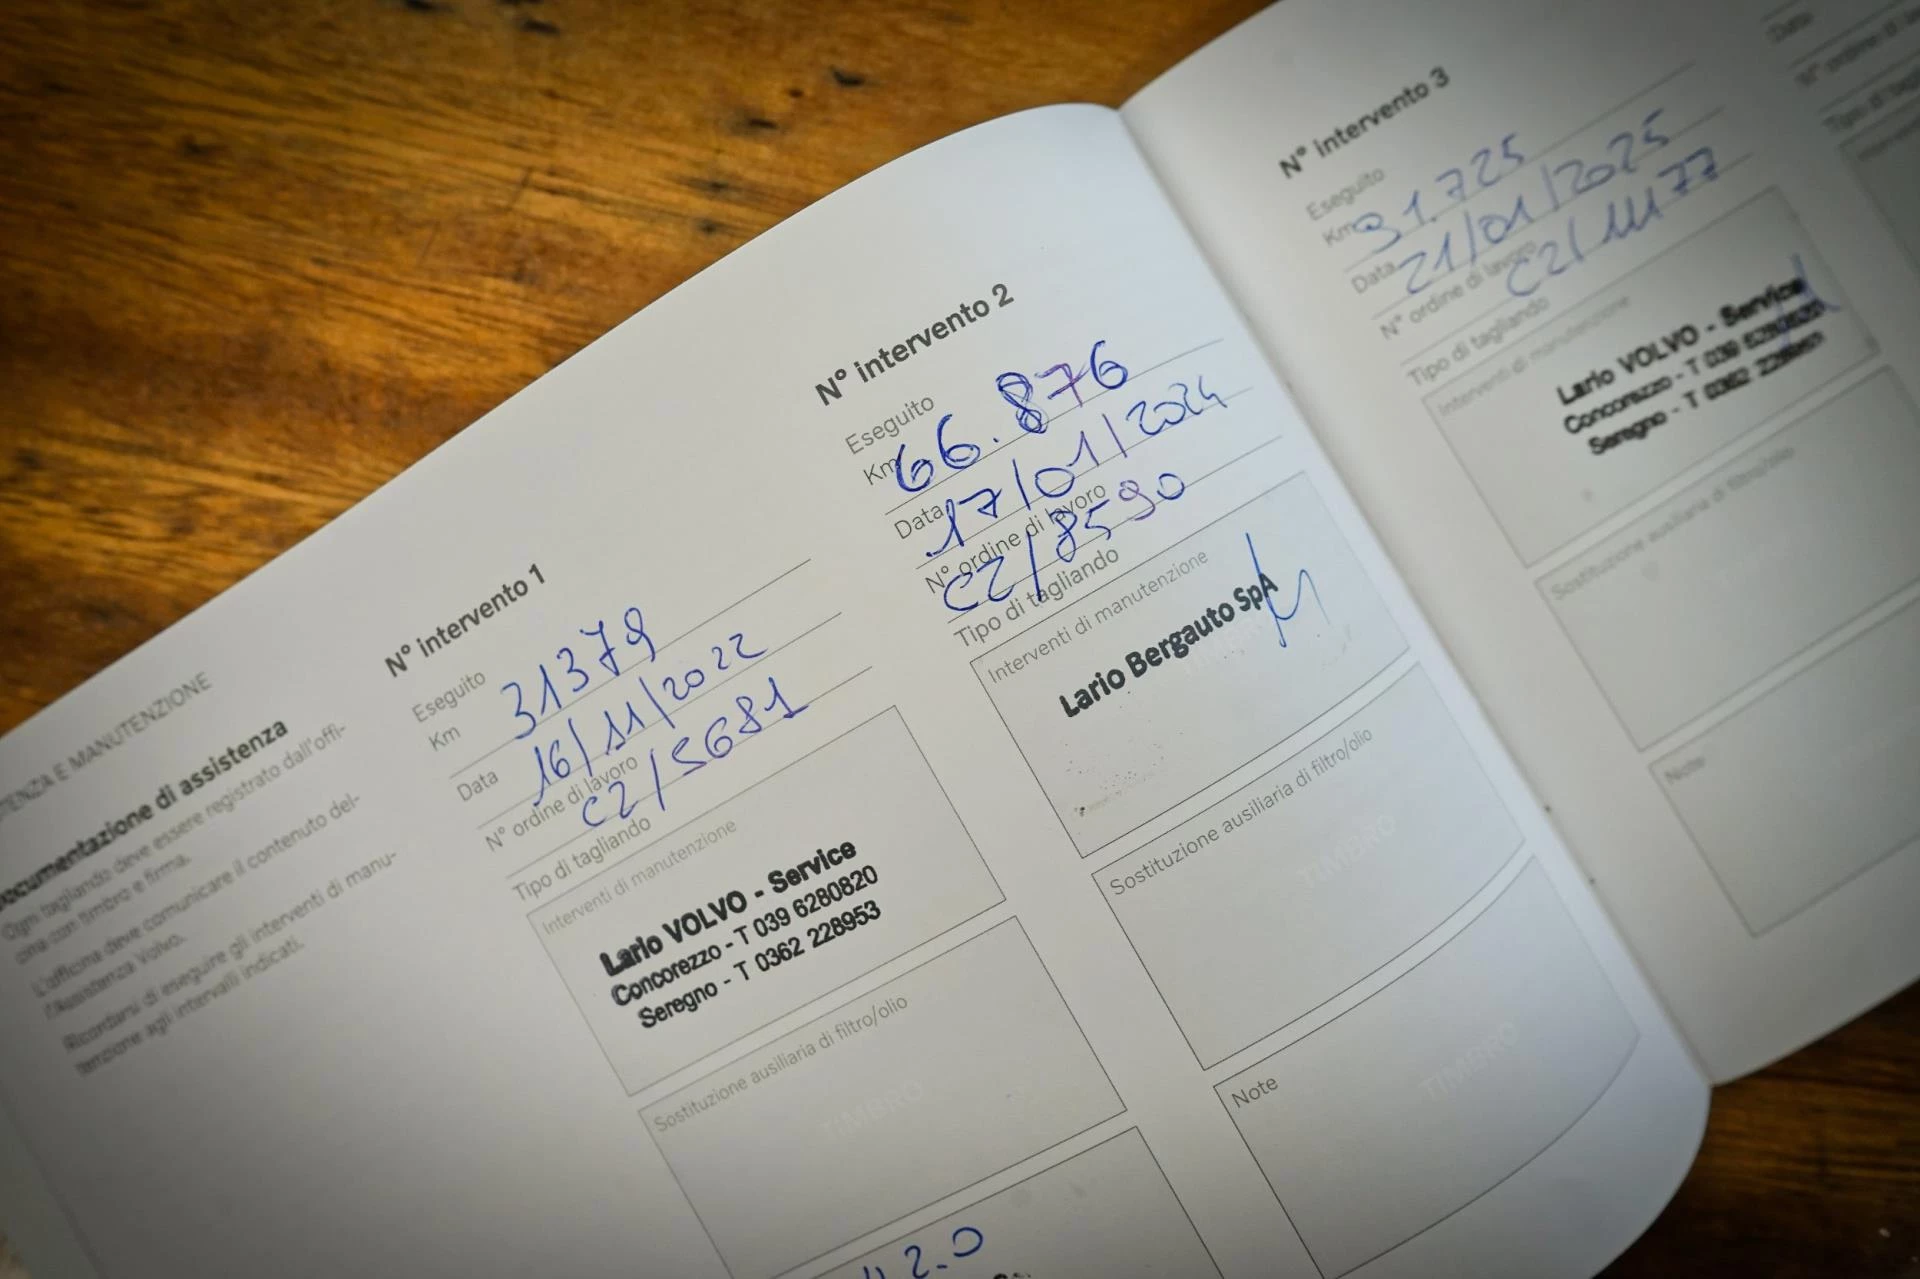 TENZA E MANUTENZIONE
ocumentazione di assistenza
Ogni tagliando deve essere registrato dall'offi-
cina con timbro e firma.
L'officina deve comunicare il contenuto del-
l'Assistenza Volvo.
Ricordarsi di eseguire gli interventi di manu-
tenzione agli intervalli indicati.
N° intervento 1
Eseguito
Km 31379
Data 16/11/2022
N° ordine di lavoro C2/5681
Tipo di tagliando
Interventi di manutenzione
Lario VOLVO - Service
Concorezzo - T 039 6280820
Seregno - T 0362 228953
Sostituzione ausiliaria di filtro/olio
TIMBRO
2.0
N° intervento 2
Eseguito
Km 66.876
Data 17/01/2024
N° ordine di lavoro C2/8590
Tipo di tagliando
Interventi di manutenzione
Lario Bergauto SpA
Sostituzione ausiliaria di filtro/olio
TIMBRO
Note
TIMBRO
N° intervento 3
Eseguito
Km 91.725
Data 21/01/2025
N° ordine di lavoro C2/11177
Tipo di tagliando
Interventi di manutenzione
Lario VOLVO - Service
Concorezzo - T 039 6280820
Seregno - T 0362 228953
Sostituzione ausiliaria di filtro/olio
Note
Data
N° ordine di
Tipo di